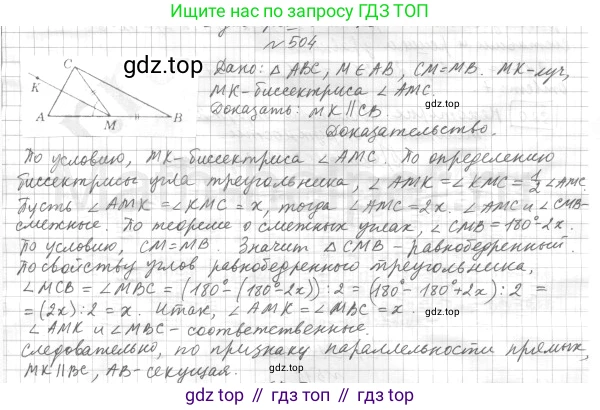 Ищите нас по запросу ГДЗ ТОП
№504
gdz.top
Дано: △ ABC, M∈AB, CM=MB. MK-луч,
MK-биссектриса ∠ AMC.
Доказать: MK||CB
Доказательство.
C
K
A
M
B
По условию, MK-биссектриса ∠AMC. По определению
биссектрисы угла треугольника, ∠AMK=∠KMC=1/2∠AMC.
Пусть ∠AMK=∠KMC=x, тогда ∠AMC=2x. ∠AMC и ∠CMB-
смежные. По теореме о смежных углах, ∠CMB=180°-2x.
По условию, CM=MB. Значит △CMB-равнобедренный.
По свойству углов равнобедренного треугольника,
∠MCB=∠MBC=(180°-(180°-2x)):2=(180°-180°+2x):2=
=(2x):2=x. Итак, ∠AMK=∠MBC=x.
∠AMK и ∠MBC-соответственные.
Следовательно, по признаку параллельности прямых,
MK||BC, AB-секущая.
gdz.top // gdz.top // gdz.top